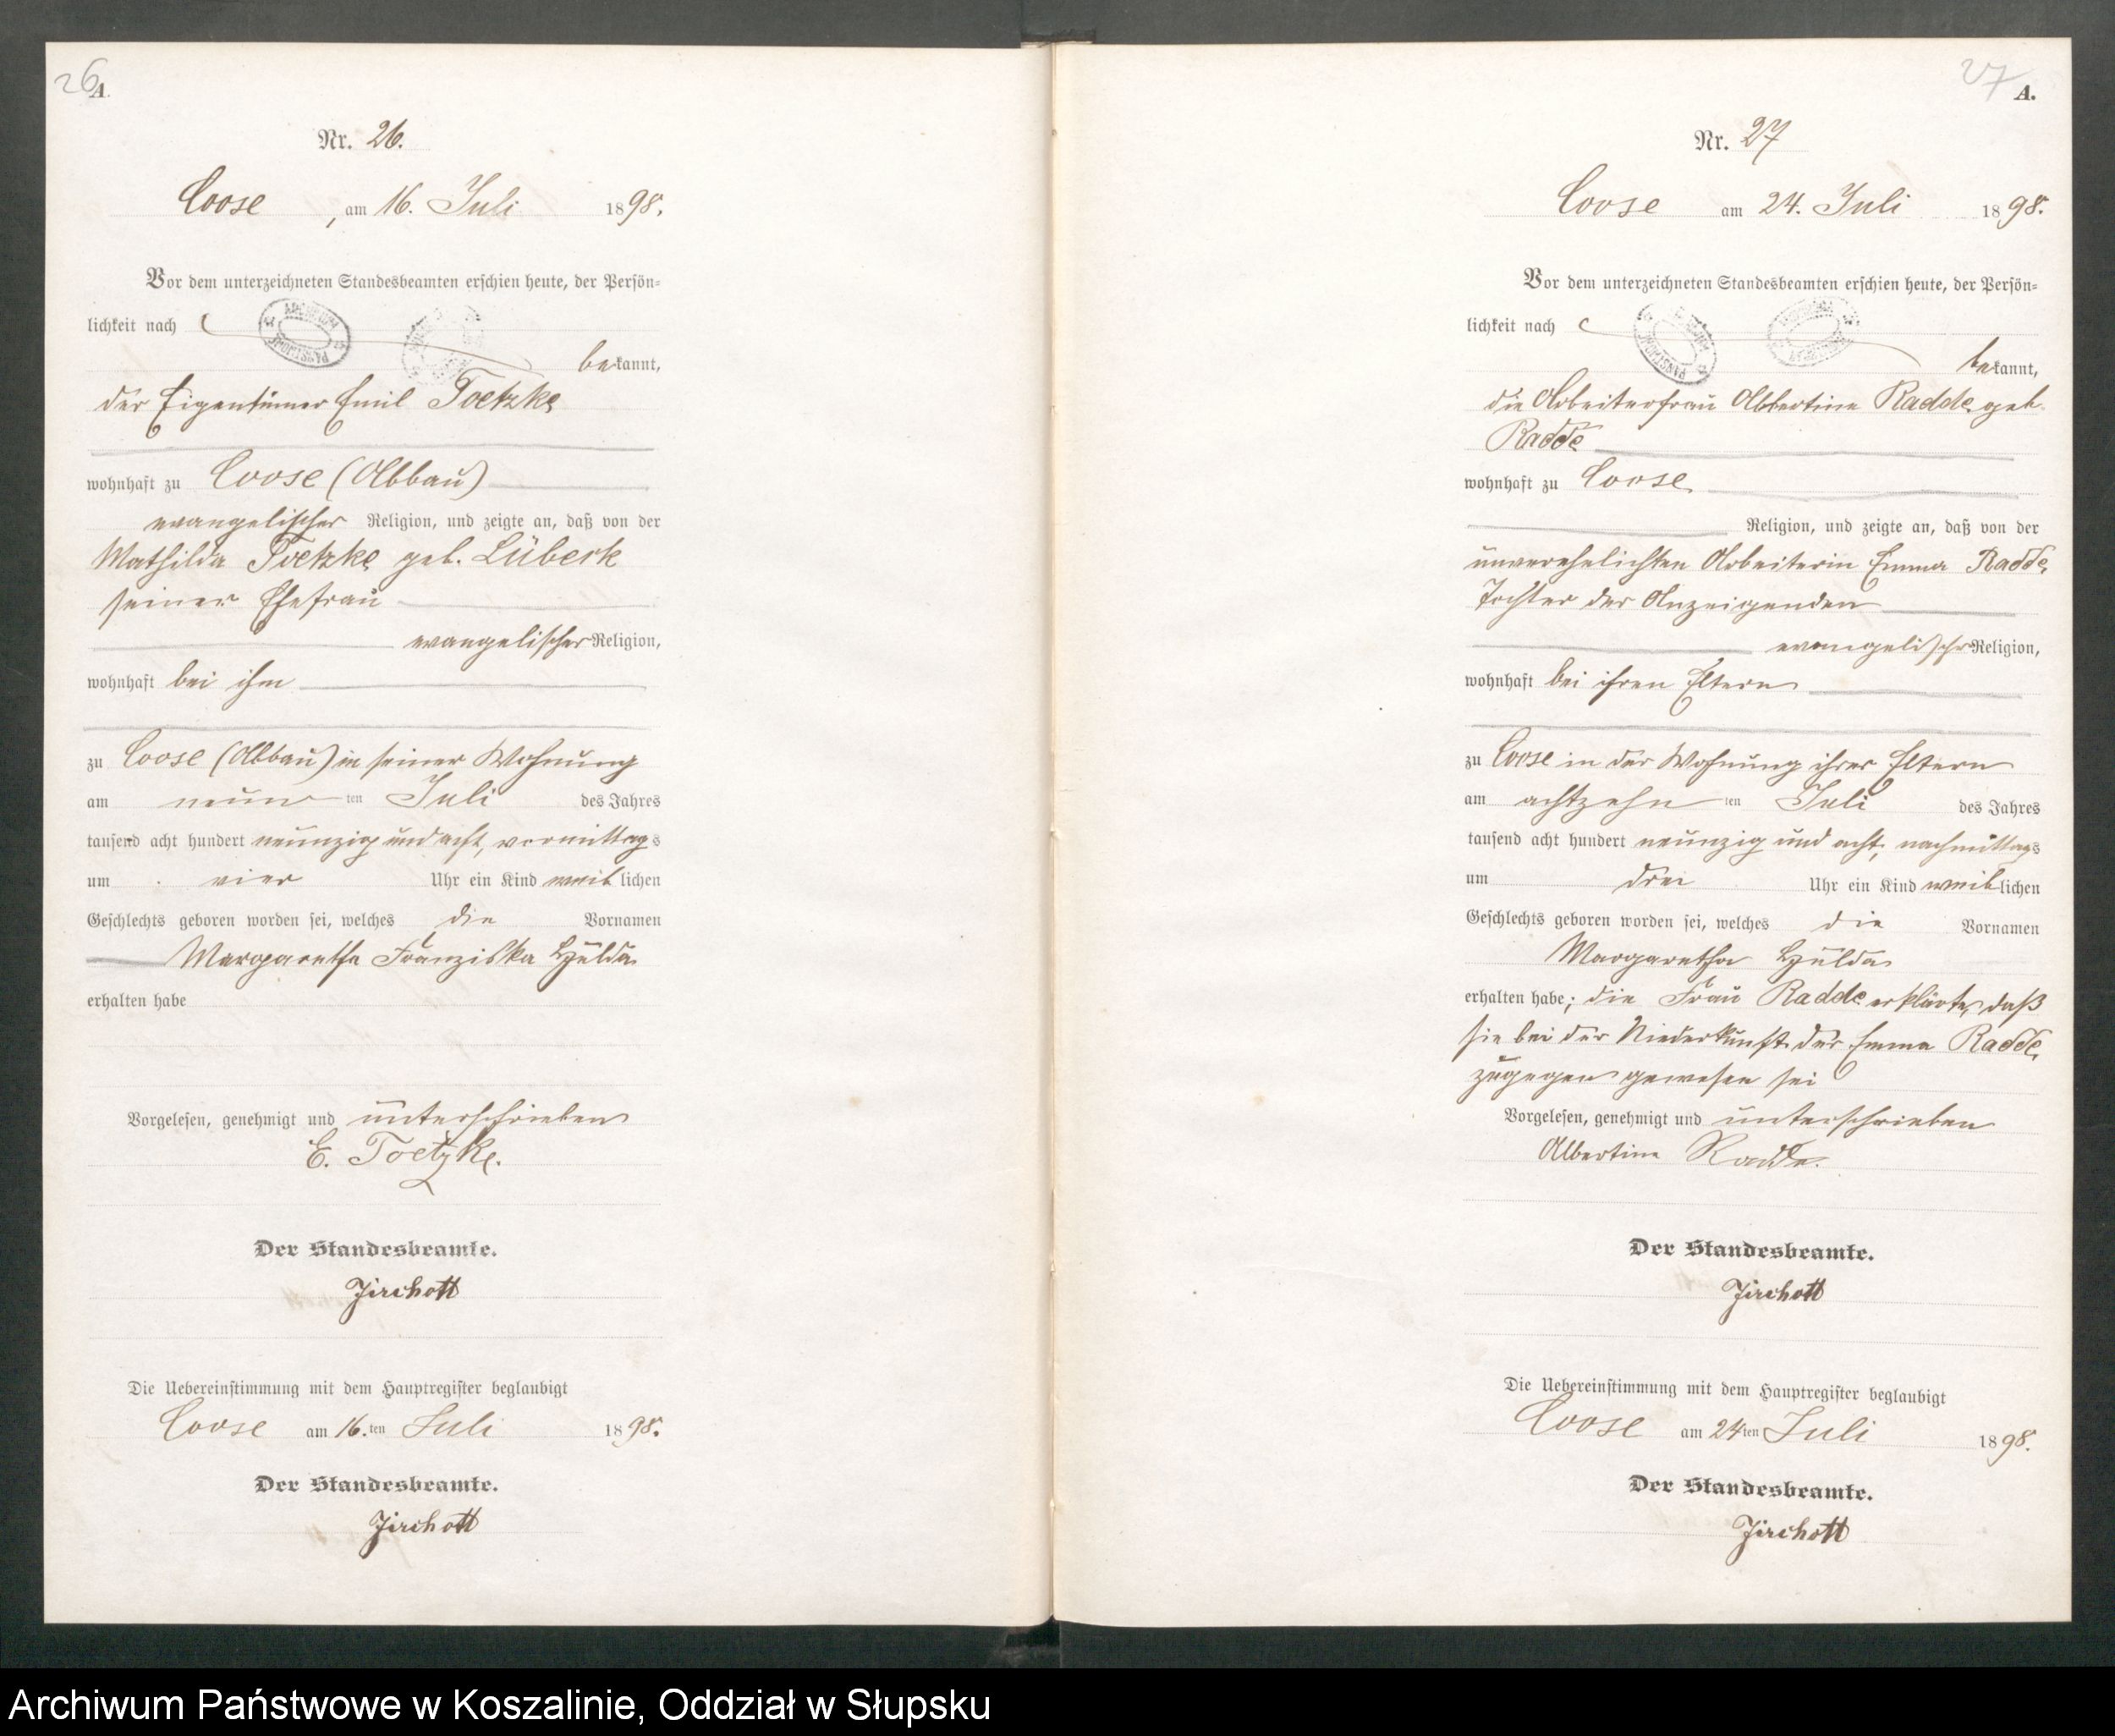 26
A.
Nr. 26.
Coose, am 16. Juli 1898.
Vor dem unterzeichneten Standesbeamten erschien heute, der Persön-
lichkeit nach
bekannt,
der Eigentümer Emil Toetzke
wohnhaft zu Coose (Abbau)
evangelischer Religion, und zeigte an, daß von der
Mathilde Toetzke geb. Lübeck
seiner Ehefrau
evangelischer Religion,
wohnhaft bei ihm
zu Coose (Abbau) in seiner Wohnung
am neunten Juli des Jahres
tausend acht hundert neunzig und acht, vormittags
um vier Uhr ein Kind weiblichen
Geschlechts geboren worden sei, welches die Vornamen
Margarethe Franziska Hulda
erhalten habe
Vorgelesen, genehmigt und unterschrieben
E. Toetzke.
Der Standesbeamte.
Jirchott
Die Uebereinstimmung mit dem Hauptregister beglaubigt
Coose am 16.ten Juli 1898.
Der Standesbeamte.
Jirchott
27
A.
Nr. 27
Coose am 24. Juli 1898.
Vor dem unterzeichneten Standesbeamten erschien heute, der Persön-
lichkeit nach
bekannt,
die Arbeiterfrau Albertine Radde geb.
Radde
wohnhaft zu Coose
Religion, und zeigte an, daß von der
unverehelichten Arbeiterin Emma Radde,
Tochter der Anzeigenden
evangelischer Religion,
wohnhaft bei ihren Eltern
zu Coose in der Wohnung ihrer Eltern
am achtzehnten Juli des Jahres
tausend acht hundert neunzig und acht, nachmittags
um drei Uhr ein Kind weiblichen
Geschlechts geboren worden sei, welches die Vornamen
Margaretha Hulda
erhalten habe; die Frau Radde erklärte, daß
sie bei der Niederkunft der Emma Radde
zugegen gewesen sei
Vorgelesen, genehmigt und unterschrieben
Albertine Radde.
Der Standesbeamte.
Jirchott
Die Uebereinstimmung mit dem Hauptregister beglaubigt
Coose am 24ten Juli 1898.
Der Standesbeamte.
Jirchott
Archiwum Państwowe w Koszalinie, Oddział w Słupsku